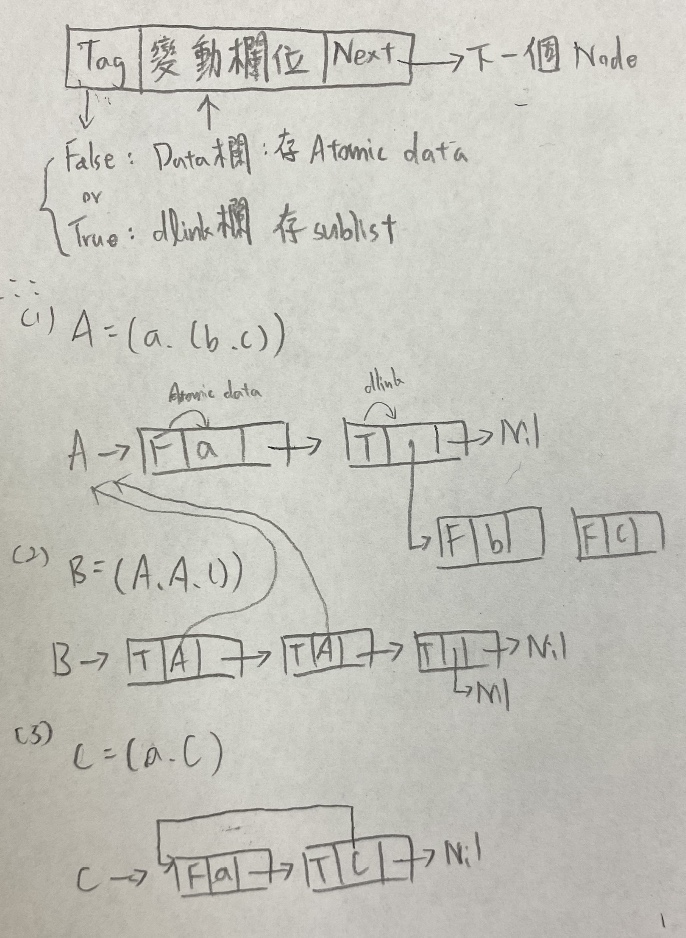 Tag 變動欄位 Next → 下一個 Node
False : Data欄 : 存 Atomic data
or
True : dlink欄 存 sublist
(1) A = (a. (b.c))
Atomic data dlink
A → F a → T → Nil
F b F c
(2) B = (A.A.())
B → T A → T A → T → Nil
Nil
(3) C = (a.C)
C → F a → T C → Nil
1